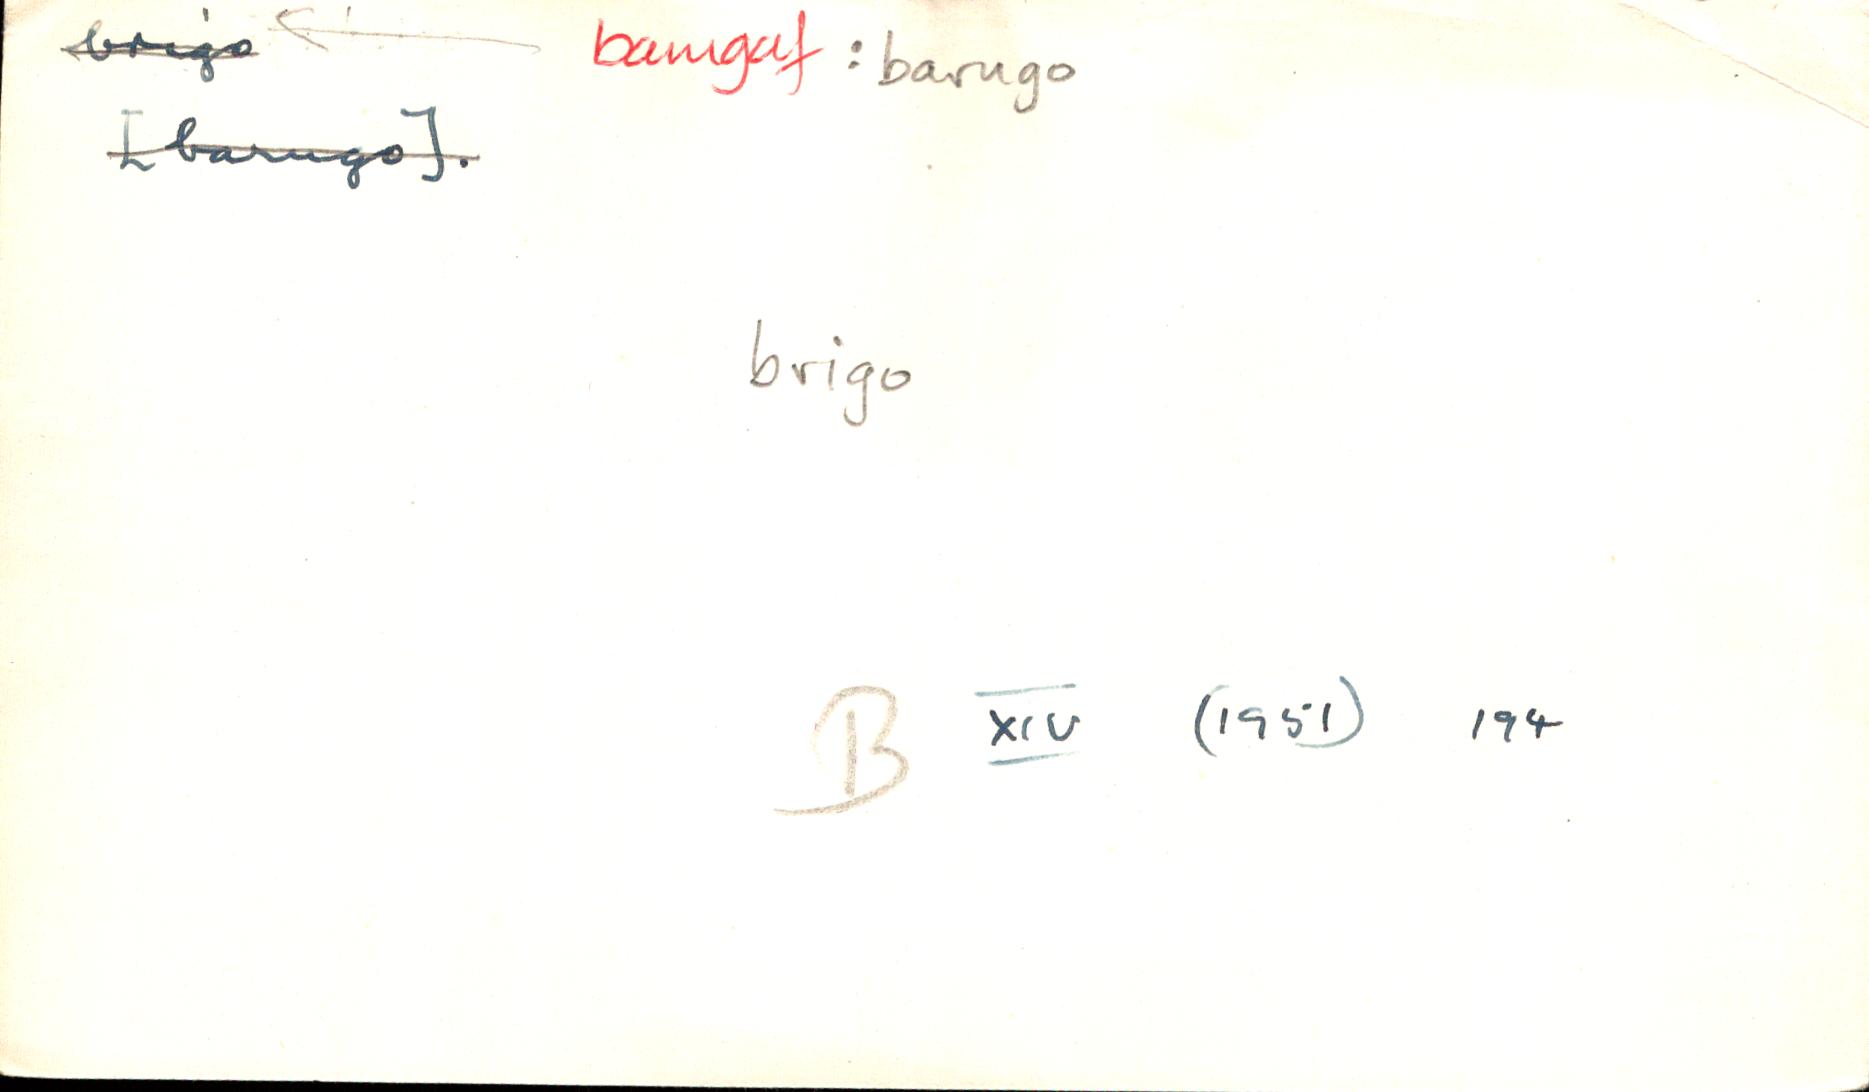 brigo barugaf : barugo
[barugo].
brigo
B XIV (1951) 194